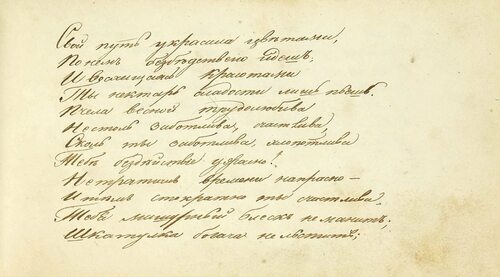 Свой путь украсила цвѣтами,
По нимъ безбѣдственно идешь,
И восхищаясь красотами
Ты нектаръ сладости лишь пьешь.
Пчела весною трудолюбива
Не столь заботлива, счастлива,
Сколь ты заботлива, хлопотлива
Тебѣ бездѣйствіе ужасно!
Не тратишь времени напрасно —
И тѣмъ стократно ты счастлива.
Тебя мишурный блескъ не манитъ;
Шкатулка богача не льститъ;